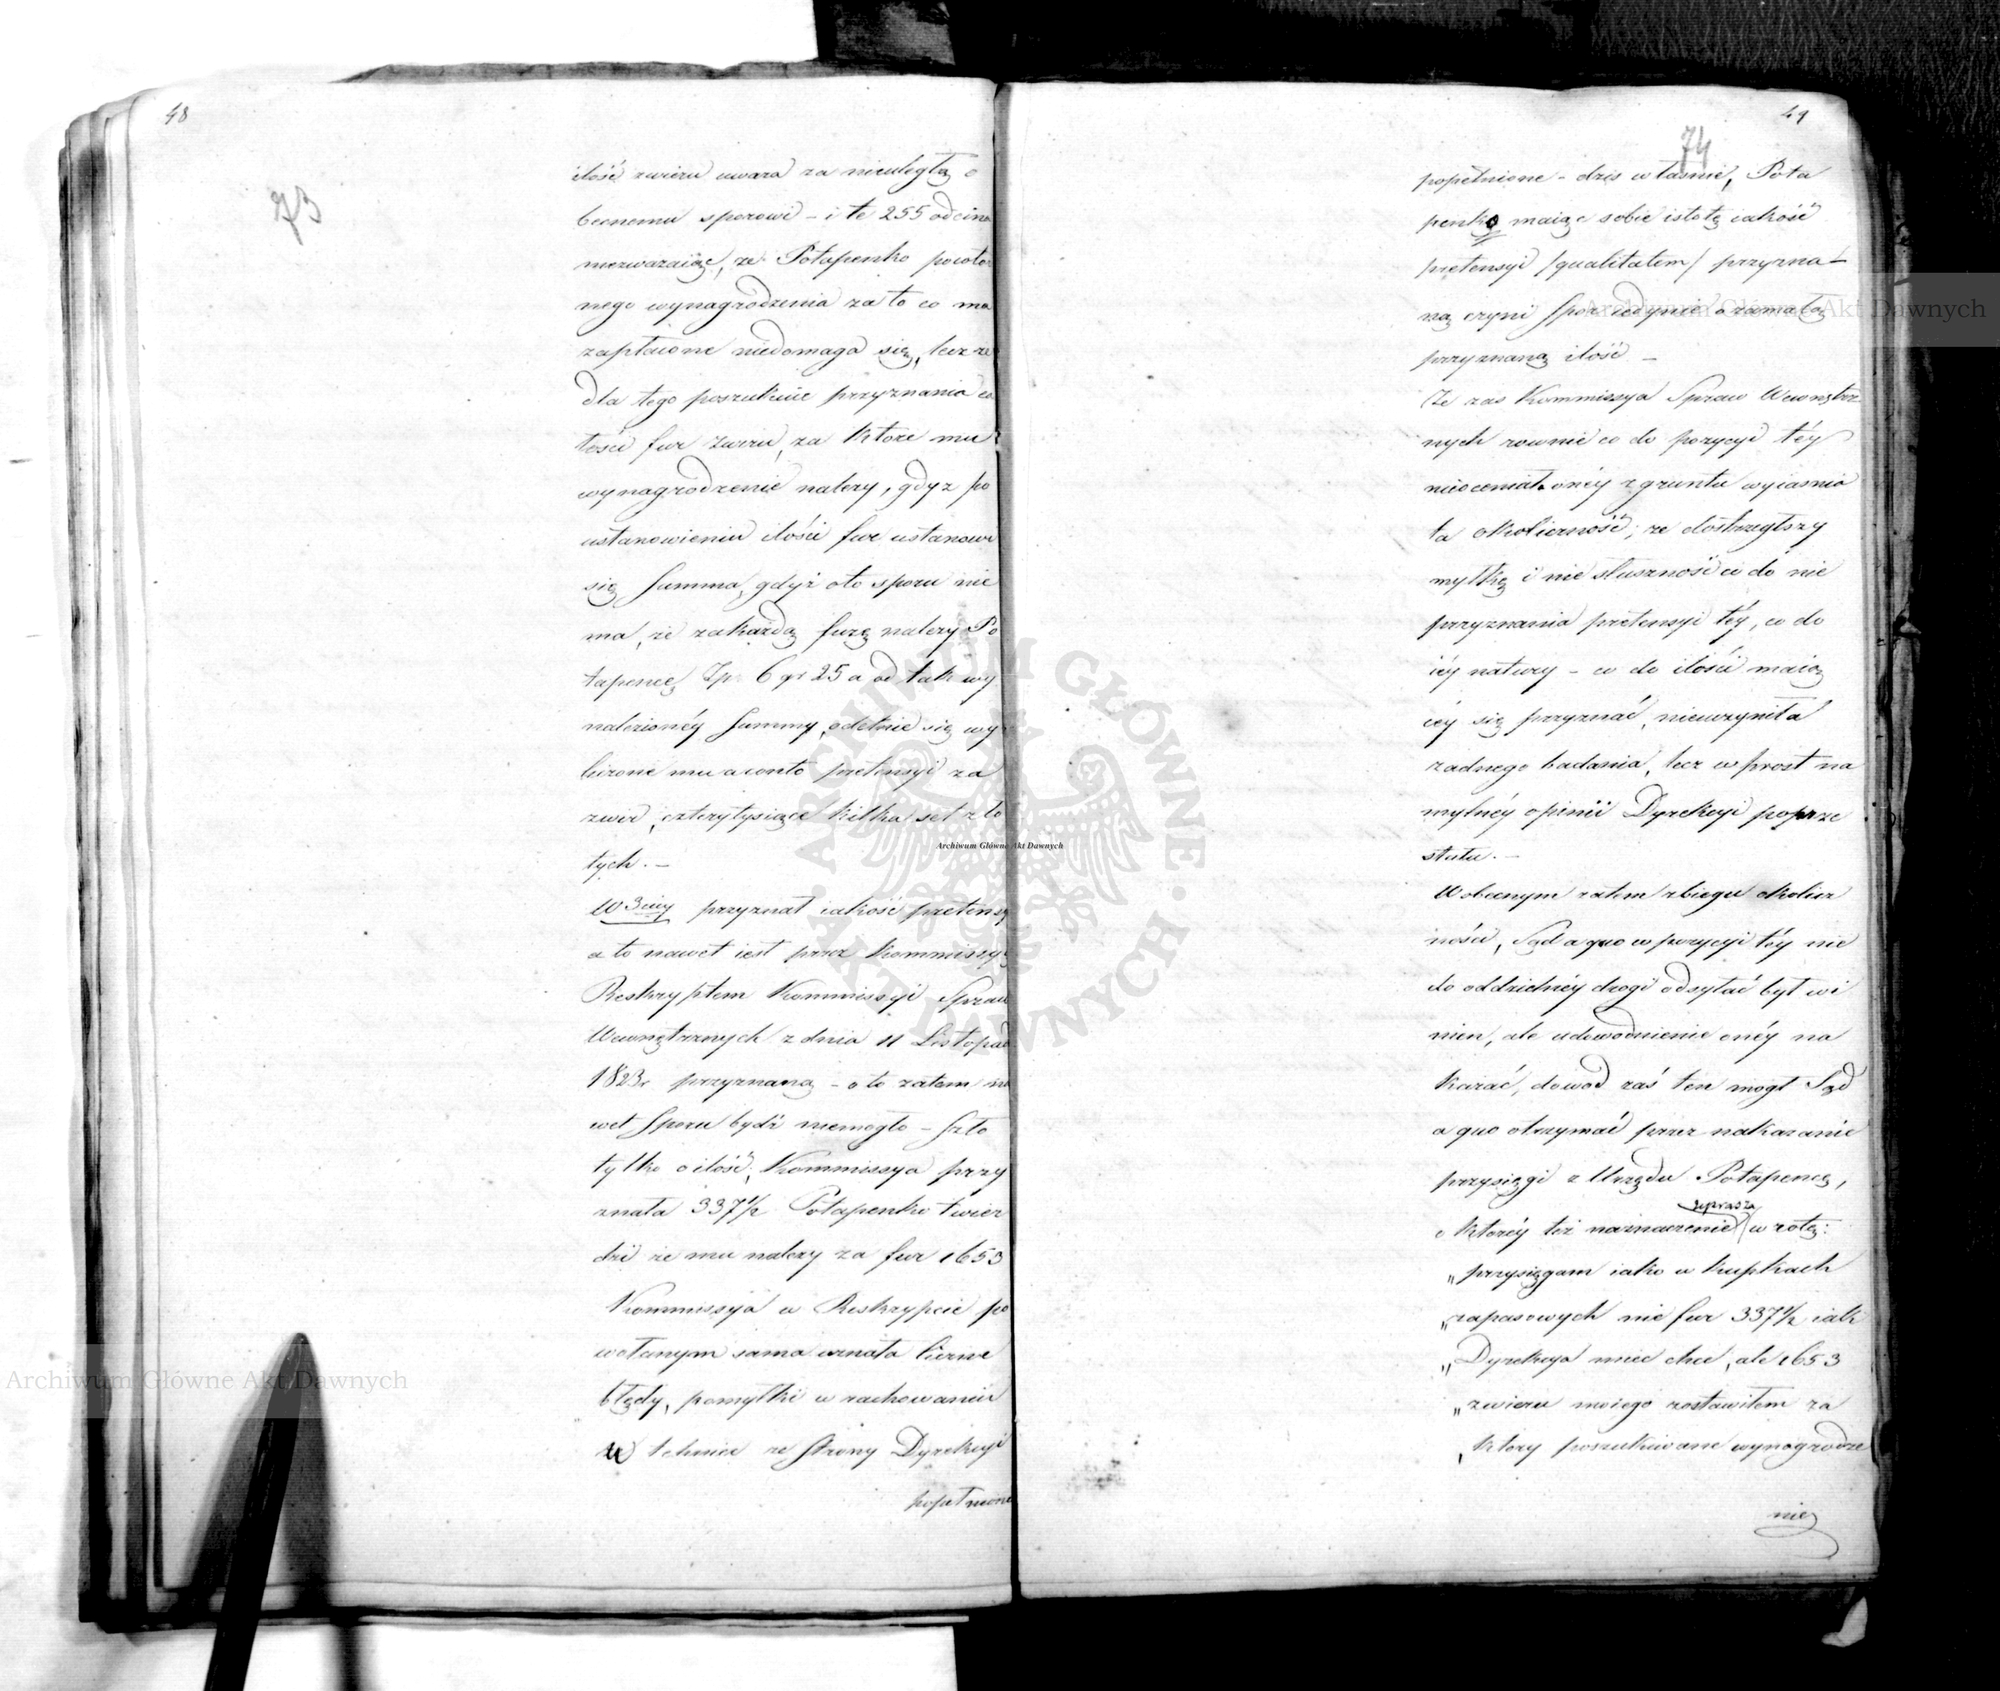 48
73
ilość zwieru uwaza za nieuległą o
becnemu sporowi - i te 255 odcina
niezwazaiąc, ze Potapenko powtor
nego wynagrodzenia za to co ma
zapłacone niedomaga się, lecz ze
dla tego poszukuie przyznania ca
łości fur zwiru, za ktore mu
wynagrodzenie nalezy, gdyz po
ustanowieniu ilości fur ustanowi
się Summa, gdyż oto sporu nie
ma, że zakażdą furę nalezy Po
tapence Zp. 6 gr 25 a od tak wy
nalezionéy Summy, odetnie się wy
liczone mu aconto pretensyi za
zwir, czterytysiące kilka set zło
tych. -
W 3ciéy przyznał iakość pretensy
a to nawet iest przez Kommissyą
Reskryptem Kommissyi Spraw
Wewnętrznych z dnia 11 Listopad
1823r przyznaną - o to zatem na
wet Sporu bydź niemogło - Szło
tylko o ilość, Kommissya przy
znała 337½ Potapenko twier
dzi że mu nalezy za fur 1653
Kommissya w Reskrypcie po
wołanym sama uznała liczne
błędy, pomyłki w rachowaniu
w technice ze strony Dyrekcyi
popełnione
49
74
popełnione - dziś własnie, Pota
penko maiąc sobie istotę iakość
pretensyi /qualitatem/ przyzna-
ną czyni Spor iedynie ozamałą
przyznaną ilość -
Ze zas Kommissya Spraw Wewnętrz
nych rownie co do pozycyi téy
nieoceniała onéy z gruntu wyiasnia
ta okoliczność, ze dostrzegłszy
myłkę i nie słuszność co do nie
przyznania pretensyi téy, co do
iéy natury - co do ilości maią
céy się przyznać, nieuczyniła
zadnego badania, lecz wprost na
mylnéy opinii Dyrekcyi poprze
stała. -
W obecnym zatem zbiegu okolicz
ności, Sąd a quo w pozycyi téy nie
do oddzielnéy drogi odsyłać był wi
nien, ale udowodnienie onéy na
kazać, dowod zaś ten mogł Sąd
a quo otrzymać przez nakazanie
przysięgi z Urzędu Potapence,
uprasza
o któréy też naznaczenie w rotę:
„przysięgam iako w kupkach
„zapasowych nie fur 337½ iak
„Dyrekcya miec chce, ale 1653
„zwieru moiego zostawiłem za
„ktory poszukiwane wynagrodze
nie